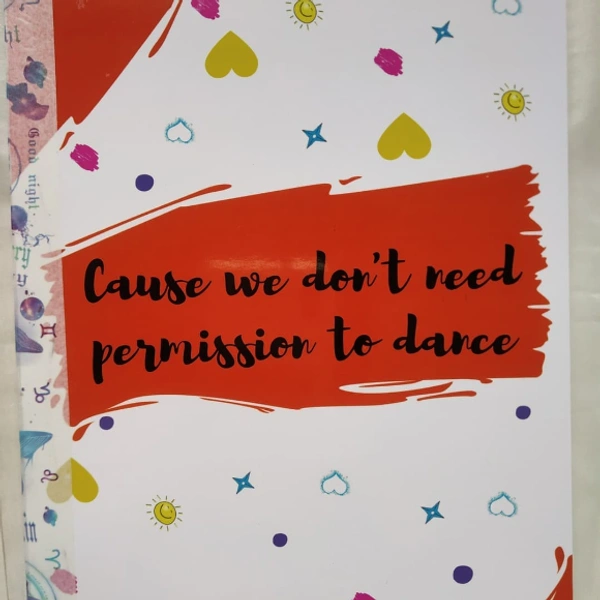 Good night.
Cause we don't need
permission to dance